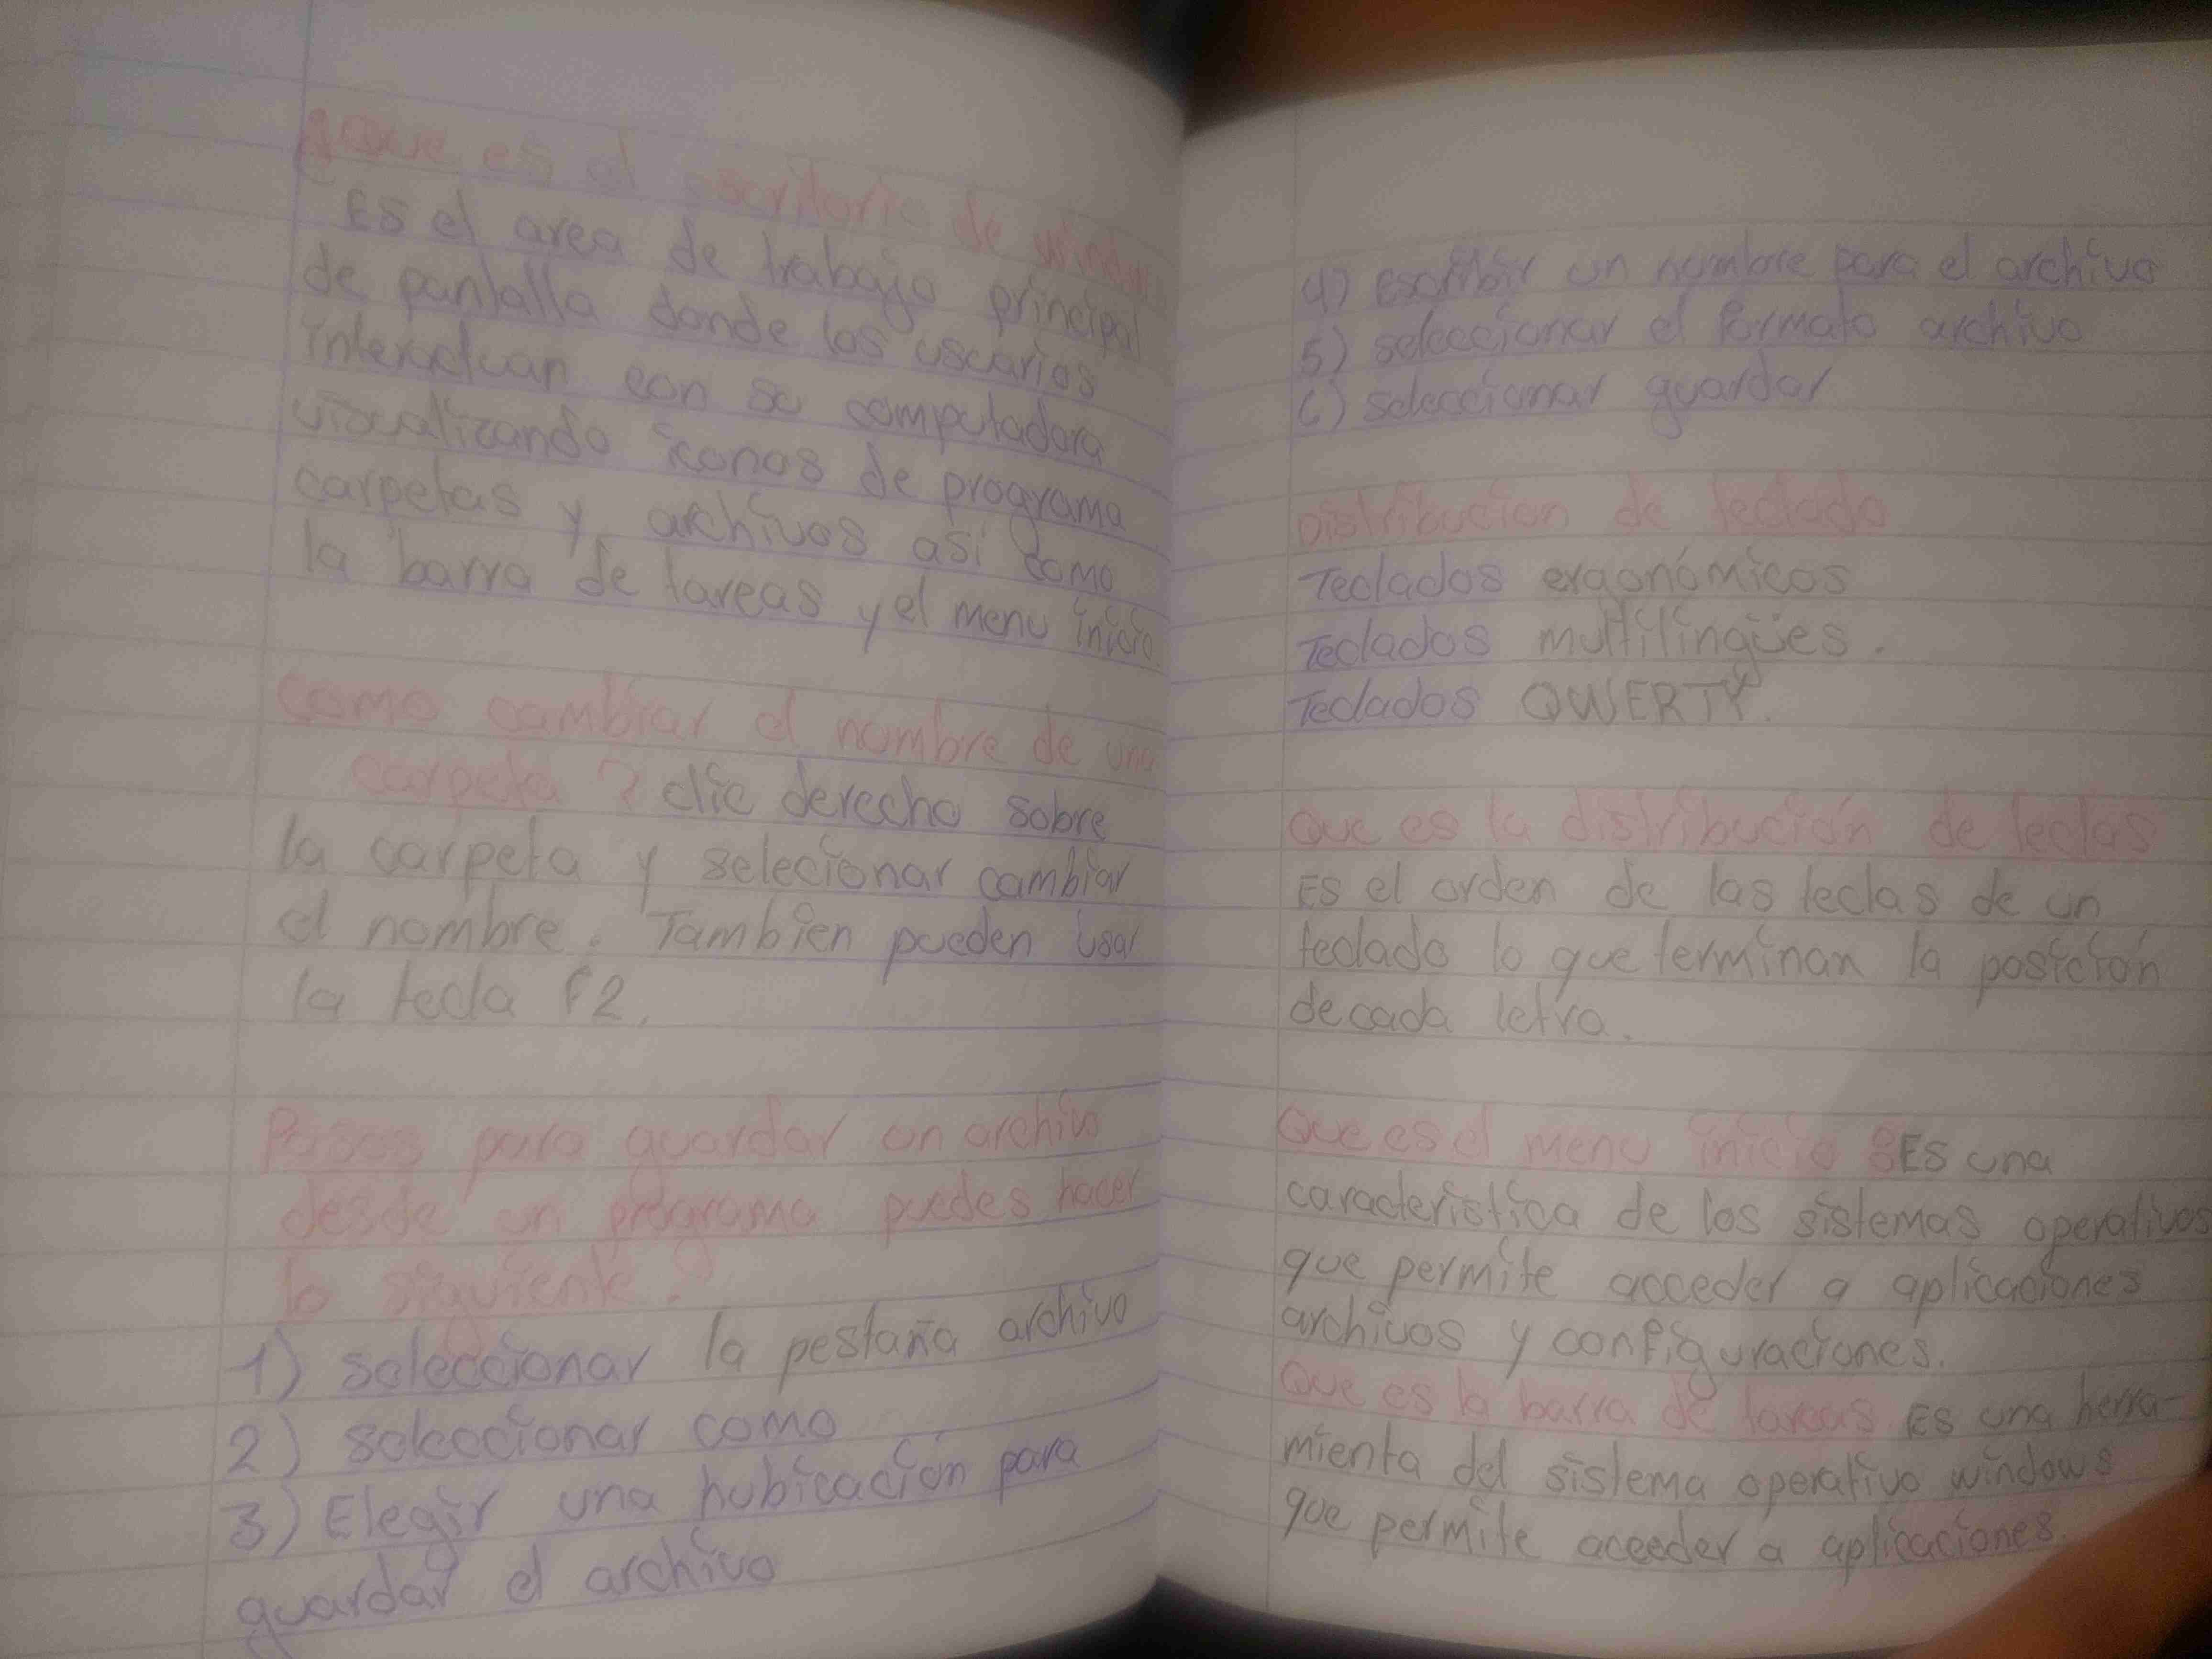 Que es el escritorio de window
Es el area de trabajo principal
de pantalla donde los uscarios
interactuan con su computadora
visualizando iconos de programa
carpetas y archivos asi como
la barra de tareas y el menu inicio
como cambiar el nombre de una
carpeta ? clic derecho sobre
la carpeta y selecionar cambiar
el nombre. Tambien pueden usar
la tecla F2.
Pasos para guardar un archivo
desde un programa puedes hacer
lo siguiente.
1) seleccionar la pestaña archivo
2) seleccionar como
3) Elegir una hubicación para
guardar el archivo
4) Escribir un nombre para el archivo
5) seleccionar el formato archivo
6) seleccionar guardar
Distribucion de teclado
Teclados ergonómicos
Teclados multilingües.
Teclados QWERTY.
Que es la distribución de teclas
Es el orden de las teclas de un
teclado lo que terminan la posición
de cada letra.
Que es el menu inicio Es una
caracteristica de los sistemas operativos
que permite acceder a aplicaciones
archivos y configuraciones.
Que es la barra de tareas Es una herra-
mienta del sistema operativo windows
que permite acceder a aplicaciones.